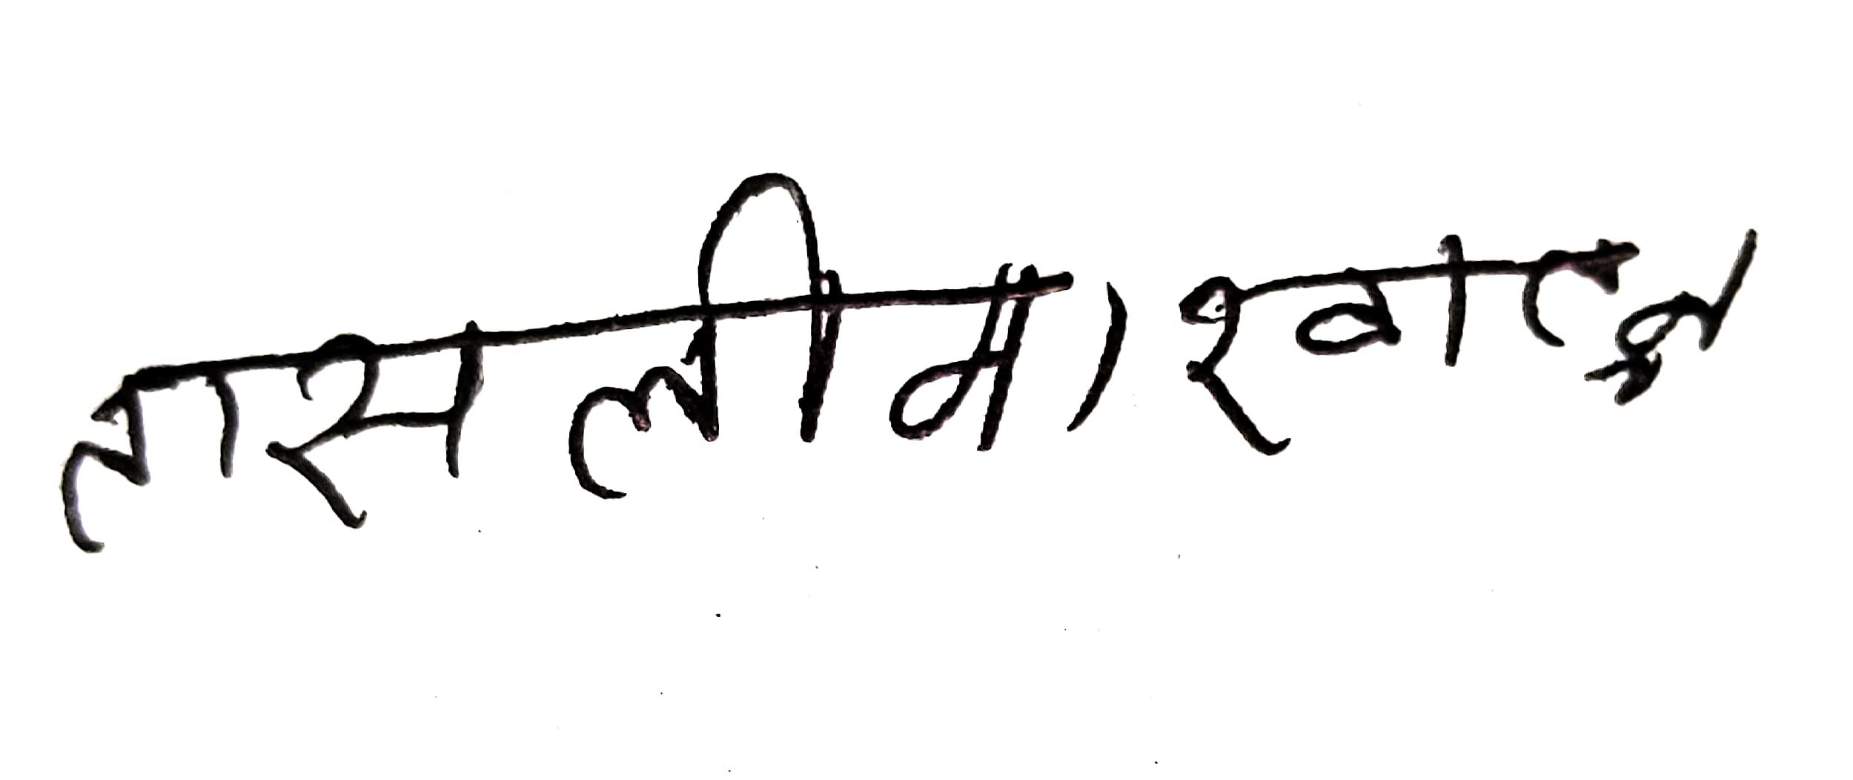 तासलीमा खातून